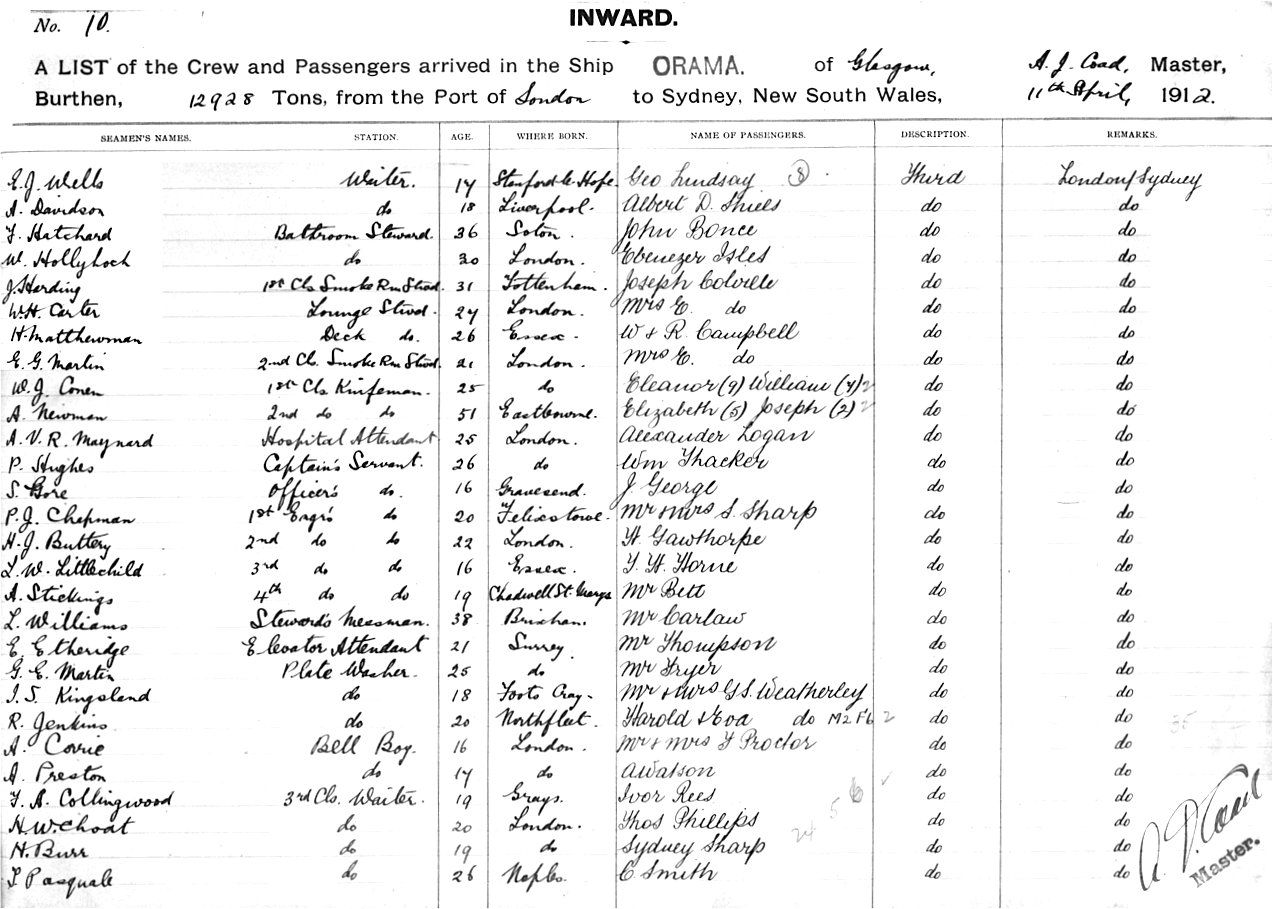 No. 10.
INWARD.
A LIST of the Crew and Passengers arrived in the Ship ORAMA. of Glasgow, A. J. Coad, Master,
Burthen, 12928 Tons, from the Port of London to Sydney, New South Wales, 11th April, 1912.
SEAMEN'S NAMES. STATION. AGE. WHERE BORN. NAME OF PASSENGERS. DESCRIPTION. REMARKS.
E. J. Wells Waiter. 17 Stanford-le-Hope. Geo Lindsay 8 Third London/Sydney
A. Davidson do 18 Liverpool. Albert D. Shiels do do
F. Hatchard Bathroom Steward. 36 Soton. John Bonce do do
W. Hollyhock do 30 London. Ebenezer Isles do do
J. Harding 1st Cls Smoke Rm Stwd. 31 Tottenham. Joseph Colville do do
W. H. Carter Lounge Stwd. 24 London. Mrs E. do do do
H. Matthewman Deck do. 26 Essex. W & R. Campbell do do
E. G. Martin 2nd Cls. Smoke Rm Stwd. 21 London. Mrs E. do do do
W. J. Conen 1st Cls Knifeman. 25 do Eleanor (9) William (7) 2 do do
A. Newman 2nd do do 51 Eastbourne. Elizabeth (5) Joseph (2) 2 do do
A. V. R. Maynard Hospital Attendant 25 London. Alexander Logan do do
P. Hughes Captain's Servant. 26 do Wm Thacker do do
S. Gore Officer's do. 16 Gravesend. J. George do do
P. J. Chapman 1st Engr's do 20 Felixstowe. Mr & Mrs S. Sharp do do
H. J. Buttery 2nd do do 22 London. H. Gawthorpe do do
L. W. Littlechild 3rd do do 16 Essex. T. H. Horne do do
A. Stickings 4th do do 19 Chadwell St. Marys Mr Bett do do
L. Williams Steward's Messman. 38 Brixham. Mr Carlaw do do
E. Etheridge Elevator Attendant 21 Surrey. Mr Thompson do do
G. E. Martin Plate Washer. 25 do Mr Fryer do do
I. S. Kingsland do 18 Foots Cray. Mr & Mrs G S. Weatherley do do
R. Jenkins. do 20 Northfleet. Harold & Eva do M2 F6 2 do do 35
A. Corrie Bell Boy. 16 London. Mr & Mrs F Proctor do do
A. Preston do 17 do A Watson do do
F. A. Collingwood 3rd Cls. Waiter. 19 Grays. Ivor Rees 6 do do
H. W. Choat do 20 London. Thos Phillips 24 5 do do
H. Burr do 19 do Sydney Sharp do do
T Pasquale do 26 Naples. E Smith do do
A. J. Coad
Master.